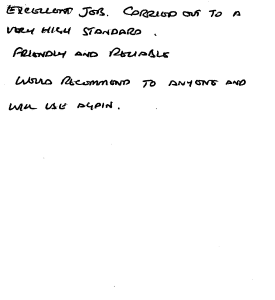 EXCELLENT JOB. CARRIED OUT TO A
VERY HIGH STANDARD.
FRIENDLY AND RELIABLE
WOULD RECOMMEND TO ANYONE AND
WILL USE AGAIN.